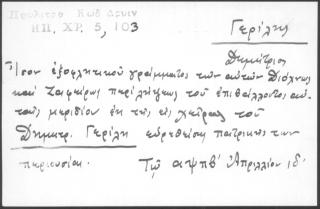 Πρωλιτο Κωδ Δρυιν
ΗΠ. ΧΡ. 5, 103
Γερίλης
Δημήτριος
Ἴσον ἐξοφλητικοῦ γράμματος τῶν αὐτῶν Διόλνως
καὶ Σαφείρως περιλήψεως τοῦ ἐπιβάλλοντος αὐ-
ταῖς μεριδίου ἐκ τῆς εἰς χεῖρας τοῦ
Δημητρ. Γερίλη εὑρεθείσης πατρικῆς των
περιουσίας. Τῷ αψπβʹ Ἀπριλλίου ιδʹ.